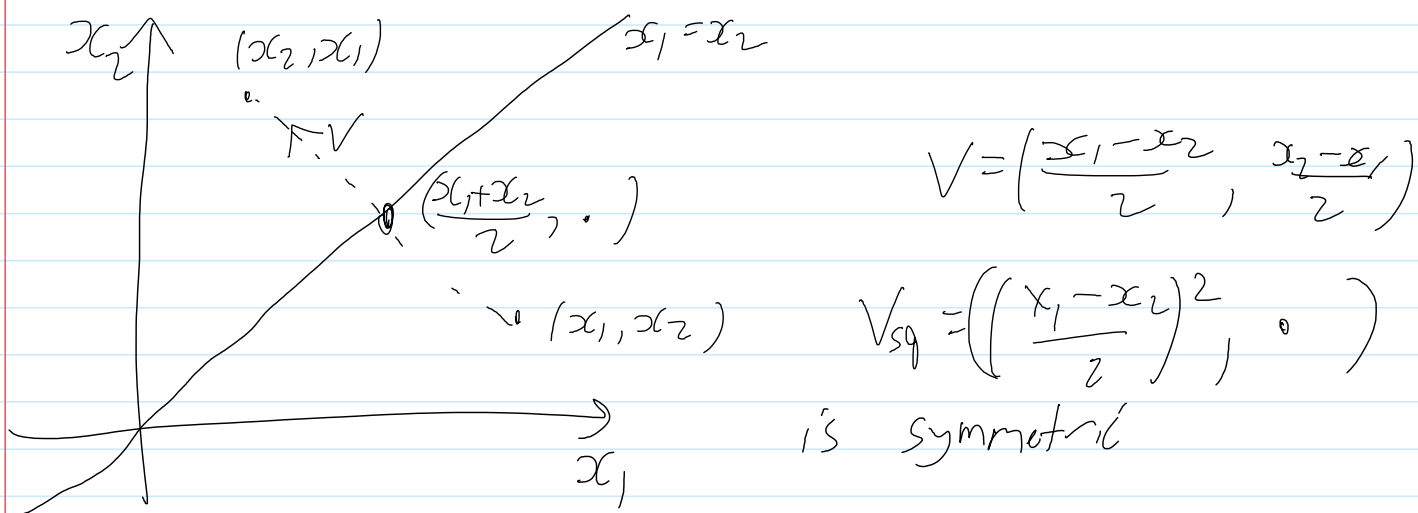 x₂
(x₂, x₁)
x₁ = x₂
V
V = ((x₁ - x₂)/2, (x₂ - x₁)/2)
((x₁ + x₂)/2, ·)
(x₁, x₂)
V_sq = (((x₁ - x₂)/2)², ·)
is symmetric
x₁